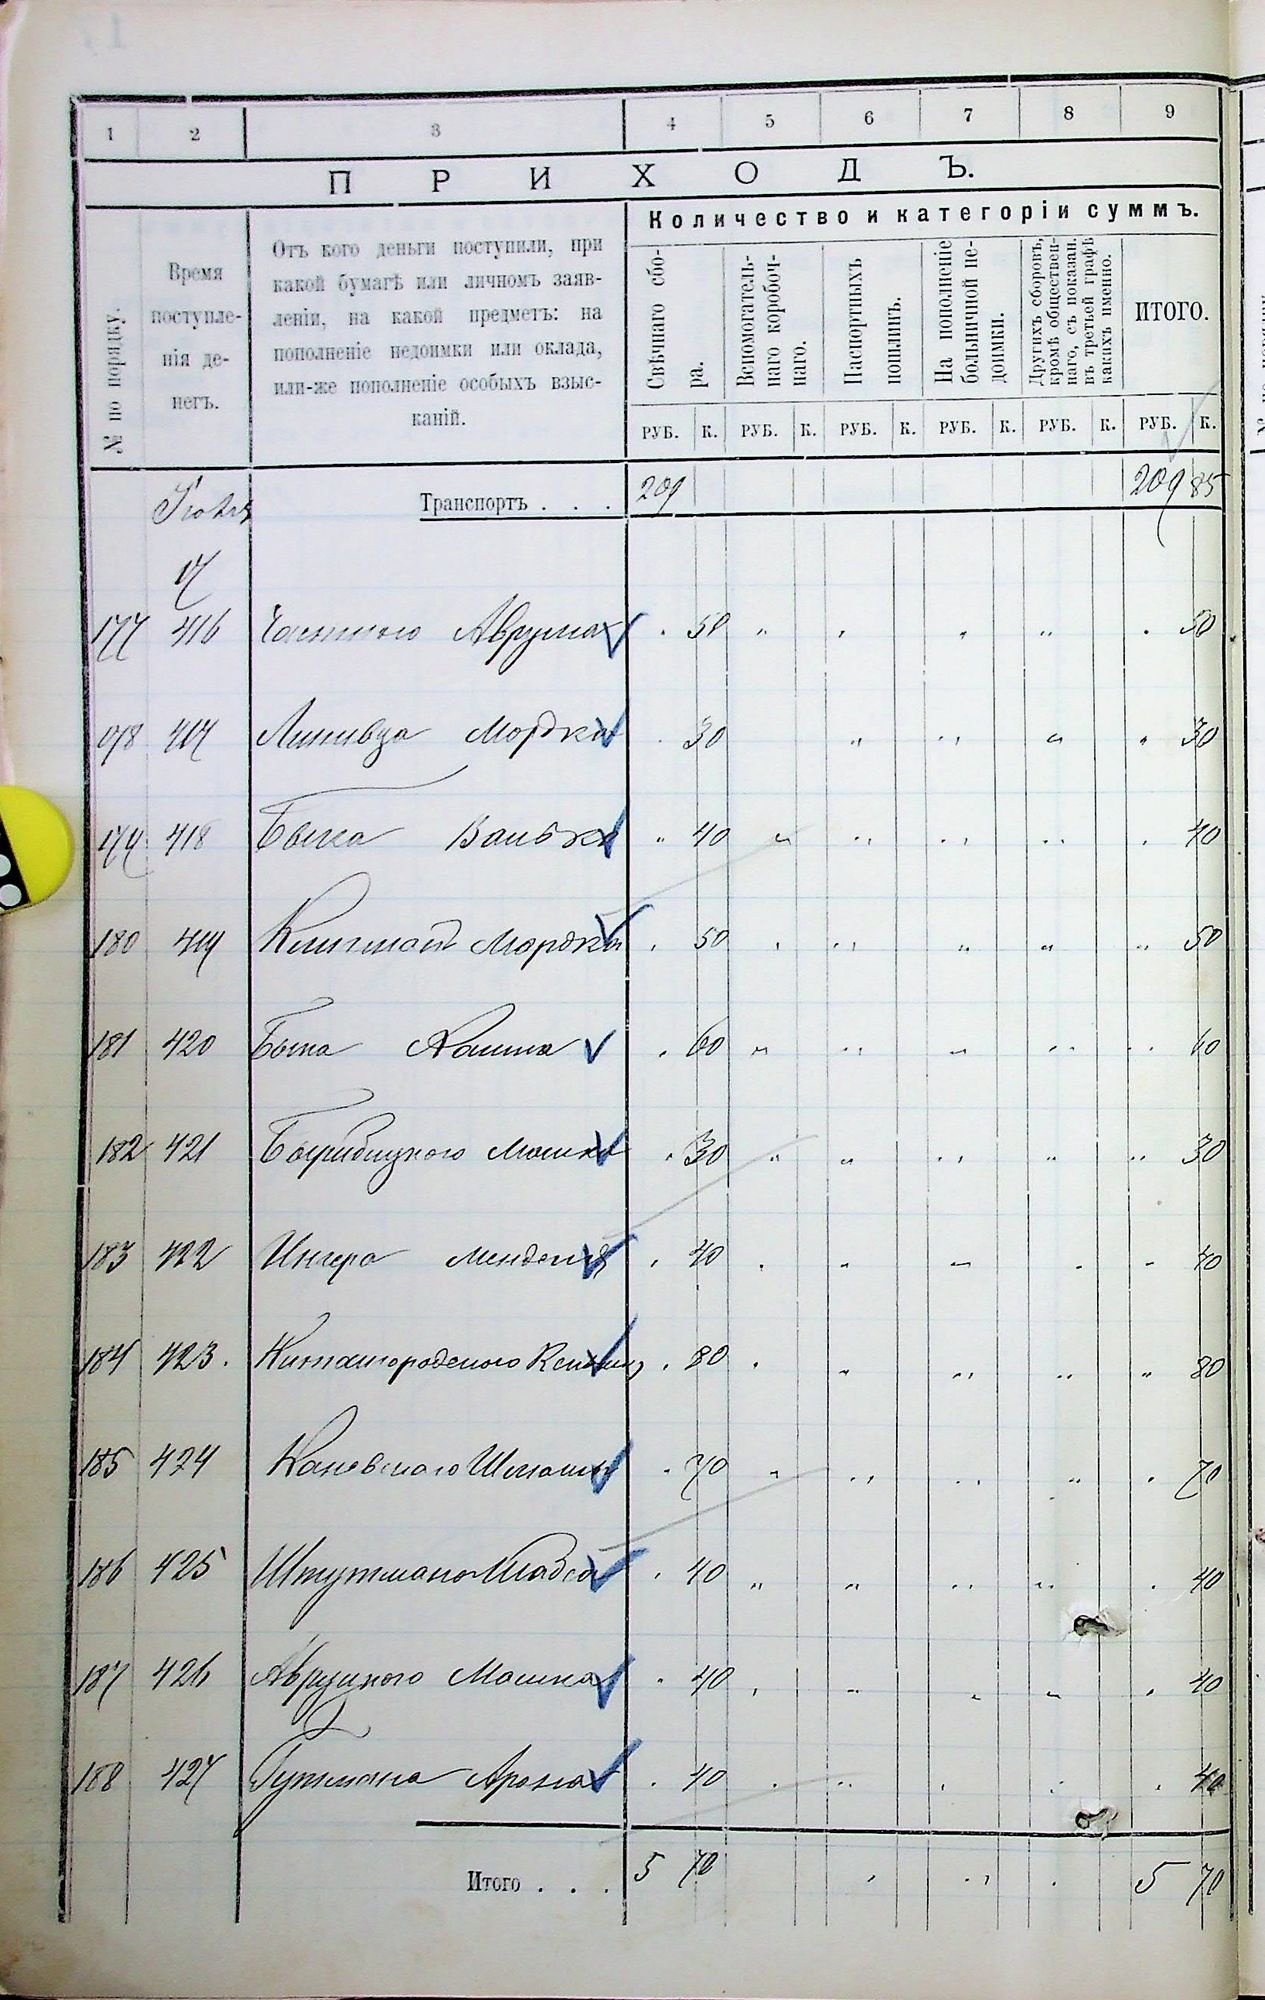 1 2 3 4 5 6 7 8 9
ПРИХОДЪ.
№ по порядку.
Время
поступле-
нія де-
негъ.
Отъ кого деньги поступили, при
какой бумагѣ или личномъ заяв-
леніи, на какой предметъ: на
пополненіе недоимки или оклада,
или-же пополненіе особыхъ взыс-
каній.
Количество и категоріи суммъ.
Свѣчнаго сбо-
ра.
Вспомогатель-
наго коробоч-
наго.
Паспортныхъ
пошлинъ.
На пополненіе
больничной не-
доимки.
Другихъ сборовъ,
кромѣ обществен-
наго, съ показан.
въ третьей графѣ
какихъ именно.
ИТОГО.
РУБ. К. РУБ. К. РУБ. К. РУБ. К. РУБ. К. РУБ. К.
Транспортъ . . . 209 209 85
17
177 416 Частного Аврума 50 50
178 417 Линивца Мордка 30 30
179 418 Быка Волько 40 40
180 419 Мордка 50 50
181 420 Быка 60 60
182 421 Мошка 30 30
183 422 Ингера Менделя 40 40
184 423. Китайгородского 80 80
185 424 Каневского Шлиомы 70 70
186 425 Штутмана 40 40
187 426 Авруцкого Мошка 40 40
188 427 Гутмана Арона 40 40
Итого . . . 5 70 5 70